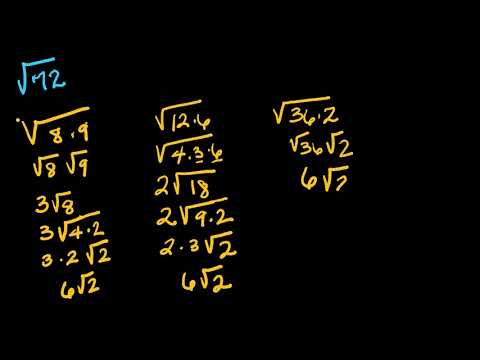 √72
√8·9
√8 √9
3√8
3√4·2
3·2√2
6√2
√12·6
√4·3·6
2√18
2√9·2
2·3√2
6√2
√36·2
√36 √2
6√2